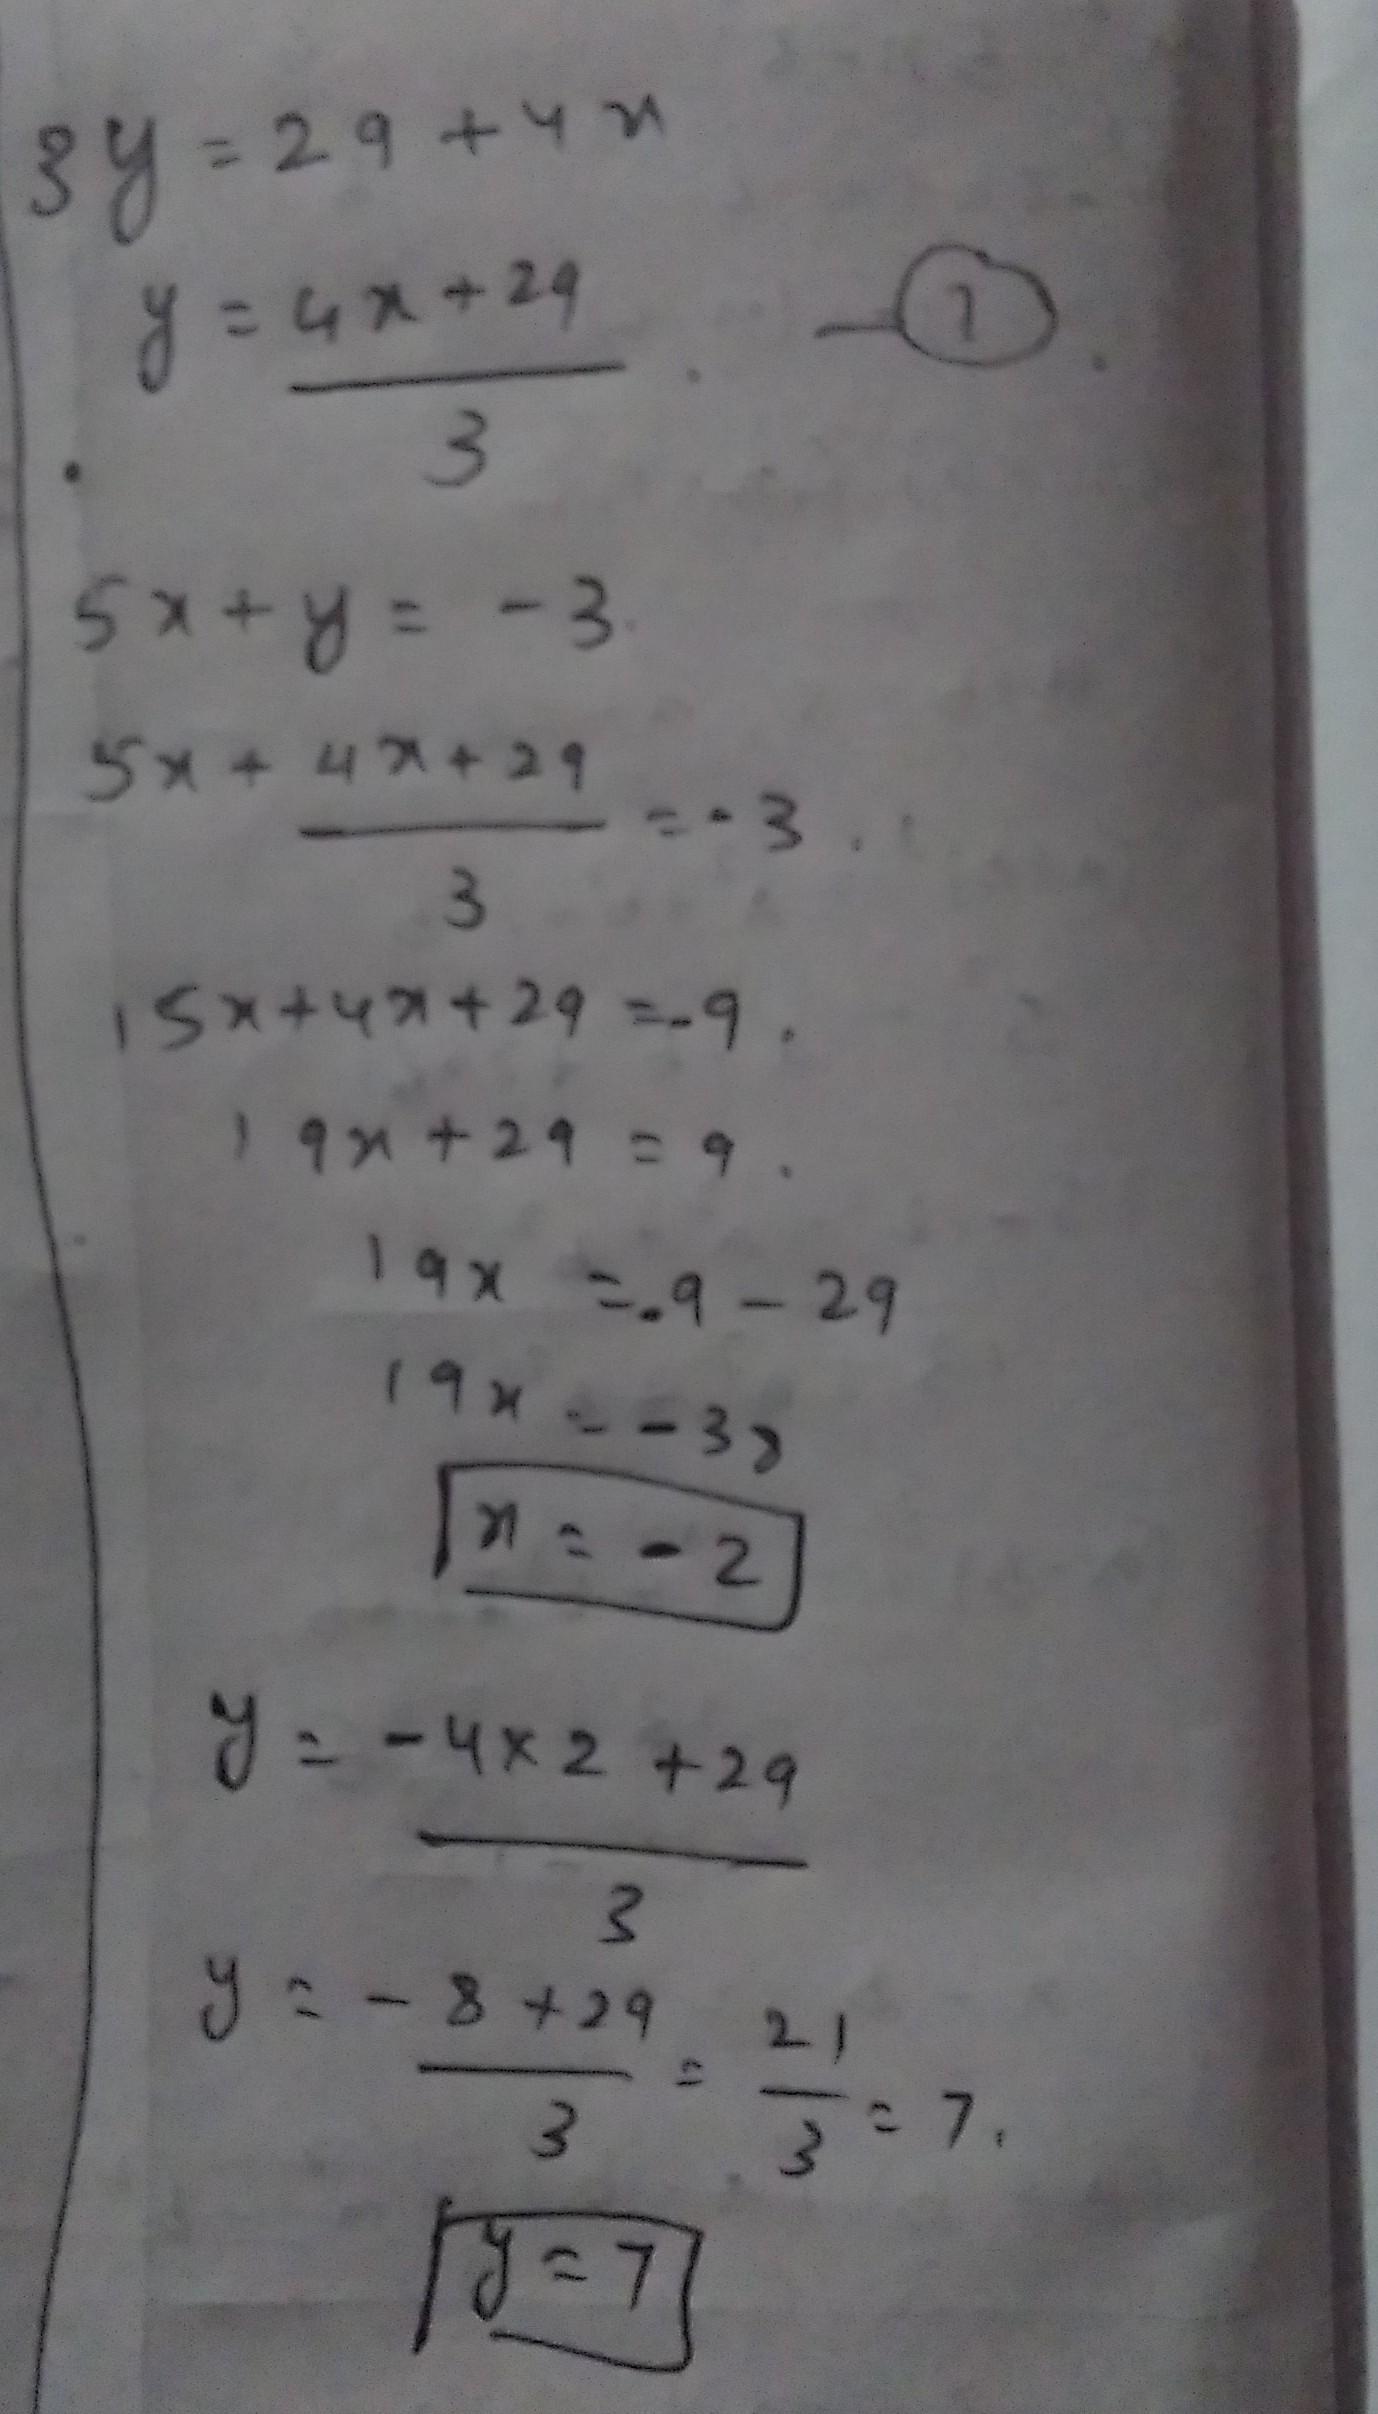 3y = 29 + 4x
y = 4x + 29 / 3 . — 1 .
5x + y = -3.
5x + 4x + 29 / 3 = -3 .
15x + 4x + 29 = -9 .
19x + 29 = 9 .
19x = -9 - 29
19x = -38
x = -2
y = -4 x 2 + 29 / 3
y = -8 + 29 / 3 = 21 / 3 = 7.
y = 7